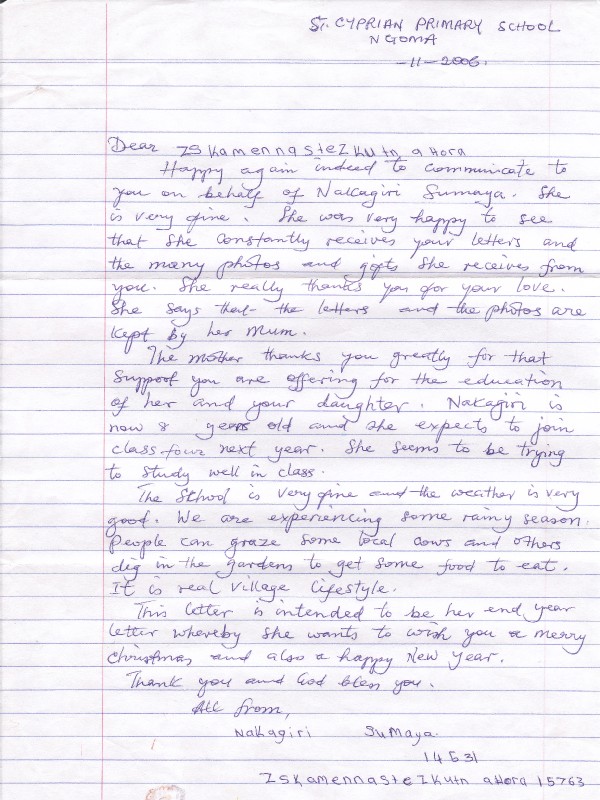 ST. CYPRIAN PRIMARY SCHOOL
NGOMA
-11-2006.
Dear ZSKamennasteZKutn aHora
Happy again indeed to communicate to
you on behalf of Nakagiri Sumaya. She
is very fine. She was very happy to see
that she constantly receives your letters and
the many photos and gifts she receives from
you. She really thanks you for your love.
She says that the letters and the photos are
kept by her Mum.
The mother thanks you greatly for that
support you are offering for the education
of her and your daughter. Nakagiri is
now 8 years old and she expects to join
class four next year. She seems to be trying
to study well in class.
The school is very fine and the weather is very
good. We are experiencing some rainy season.
People can graze some local cows and others
dig in the gardens to get some food to eat.
It is real village lifestyle.
This letter is intended to be her end year
letter whereby she wants to wish you a merry
christmas and also a happy New Year.
Thank you and God bless you.
All from,
Nakagiri Sumaya.
14531
ZSKamennasteZKutn aHora 15763